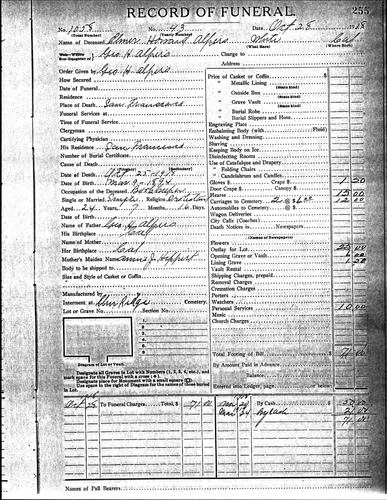 RECORD OF FUNERAL. 255
No. 1058 No. 43 Date Oct 28 1918
(Total Number) (Yearly Number)
Name of Deceased Elmer Howard Alpers White Calf
(What Race) (Where Born)
Geo. H. Alpers Charge to
Address
Order Given by Geo. H. Alpers
How Secured
Date of Funeral
Residence
Place of Death San Francisco
Funeral Services at
Time of Funeral Service
Clergyman
Certifying Physician
His Residence San Francisco
Number of Burial Certificate
Cause of Death
Date of Death Oct. 25-1918
Date of Birth Mar 9-1894
Occupation of the Deceased Bookkeeper
Single or Married Single Religion
Aged 24 Years 7 Months 16 Days
Date of Birth
Name of Father Geo. H. Alpers
His Birthplace Calf
Name of Mother
Her Birthplace Calf
Mother's Maiden Name Annie J.
Body to be shipped to
Size and Style of Casket or Coffin
Manufactured by
Interment at Cemetery.
Lot or Grave No. Section No.
Diagram of Lot or Vault.
1
2
3
4
5
6
Designate all Graves in Lot with Numbers (1, 2, 3, 4, etc.), and
mark space for this Funeral with a cross
Designate place for Monument with a small square
Use space in the right of Diagram for the names of those buried
in Lot.
Price of Casket or Coffin $
" Metallic Lining
(State kind)
" Outside Box
(State kind)
" Grave Vault
(State kind)
" Burial Robe
" Burial Slippers and Hose
Engraving Plate
Embalming Body (with Fluid)
Washing and Dressing
Shaving
Keeping Body on Ice
Disinfecting Rooms
Use of Catafalque and Drapery
" Folding Chairs
" Candelabrum and Candles
Gloves $ Crape $ 1 50
Door Crape $ Canopy $
Hearse 15 00
Carriages to Cemetery 2 @ $6.00 12 00
Automobiles to Cemetery @ $
Wagon Deliveries
City Calls (Coaches)
Death Notices in Newspapers
(Names of Newspapers)
Flowers
Outlay for Lot 25 00
Opening Grave or Vault 6 00
Lining Grave 1 50
Vault Rental
Shipping Charges, prepaid
Removal Charges
Cremation Charges
Porters
Watchers
Personal Services 10.00
Music
Church Charges
Total Footing of Bill $ 71 00
By Amount Paid in Advance
Balance
Entered into Ledger, page
Oct 28 To Funeral Charges Total, $ 71 00 By Cash 50 00
By Cash 21 00
71 00
Names of Pall Bearers